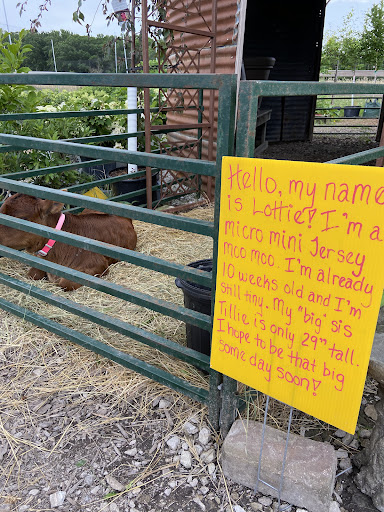 Hello, my name
is Lottie! I'm a
micro mini Jersey
moo moo. I'm already
10 weeks old and I'm
still tiny. My "big" sis
Tillie is only 29" tall.
I hope to be that big
some day soon!